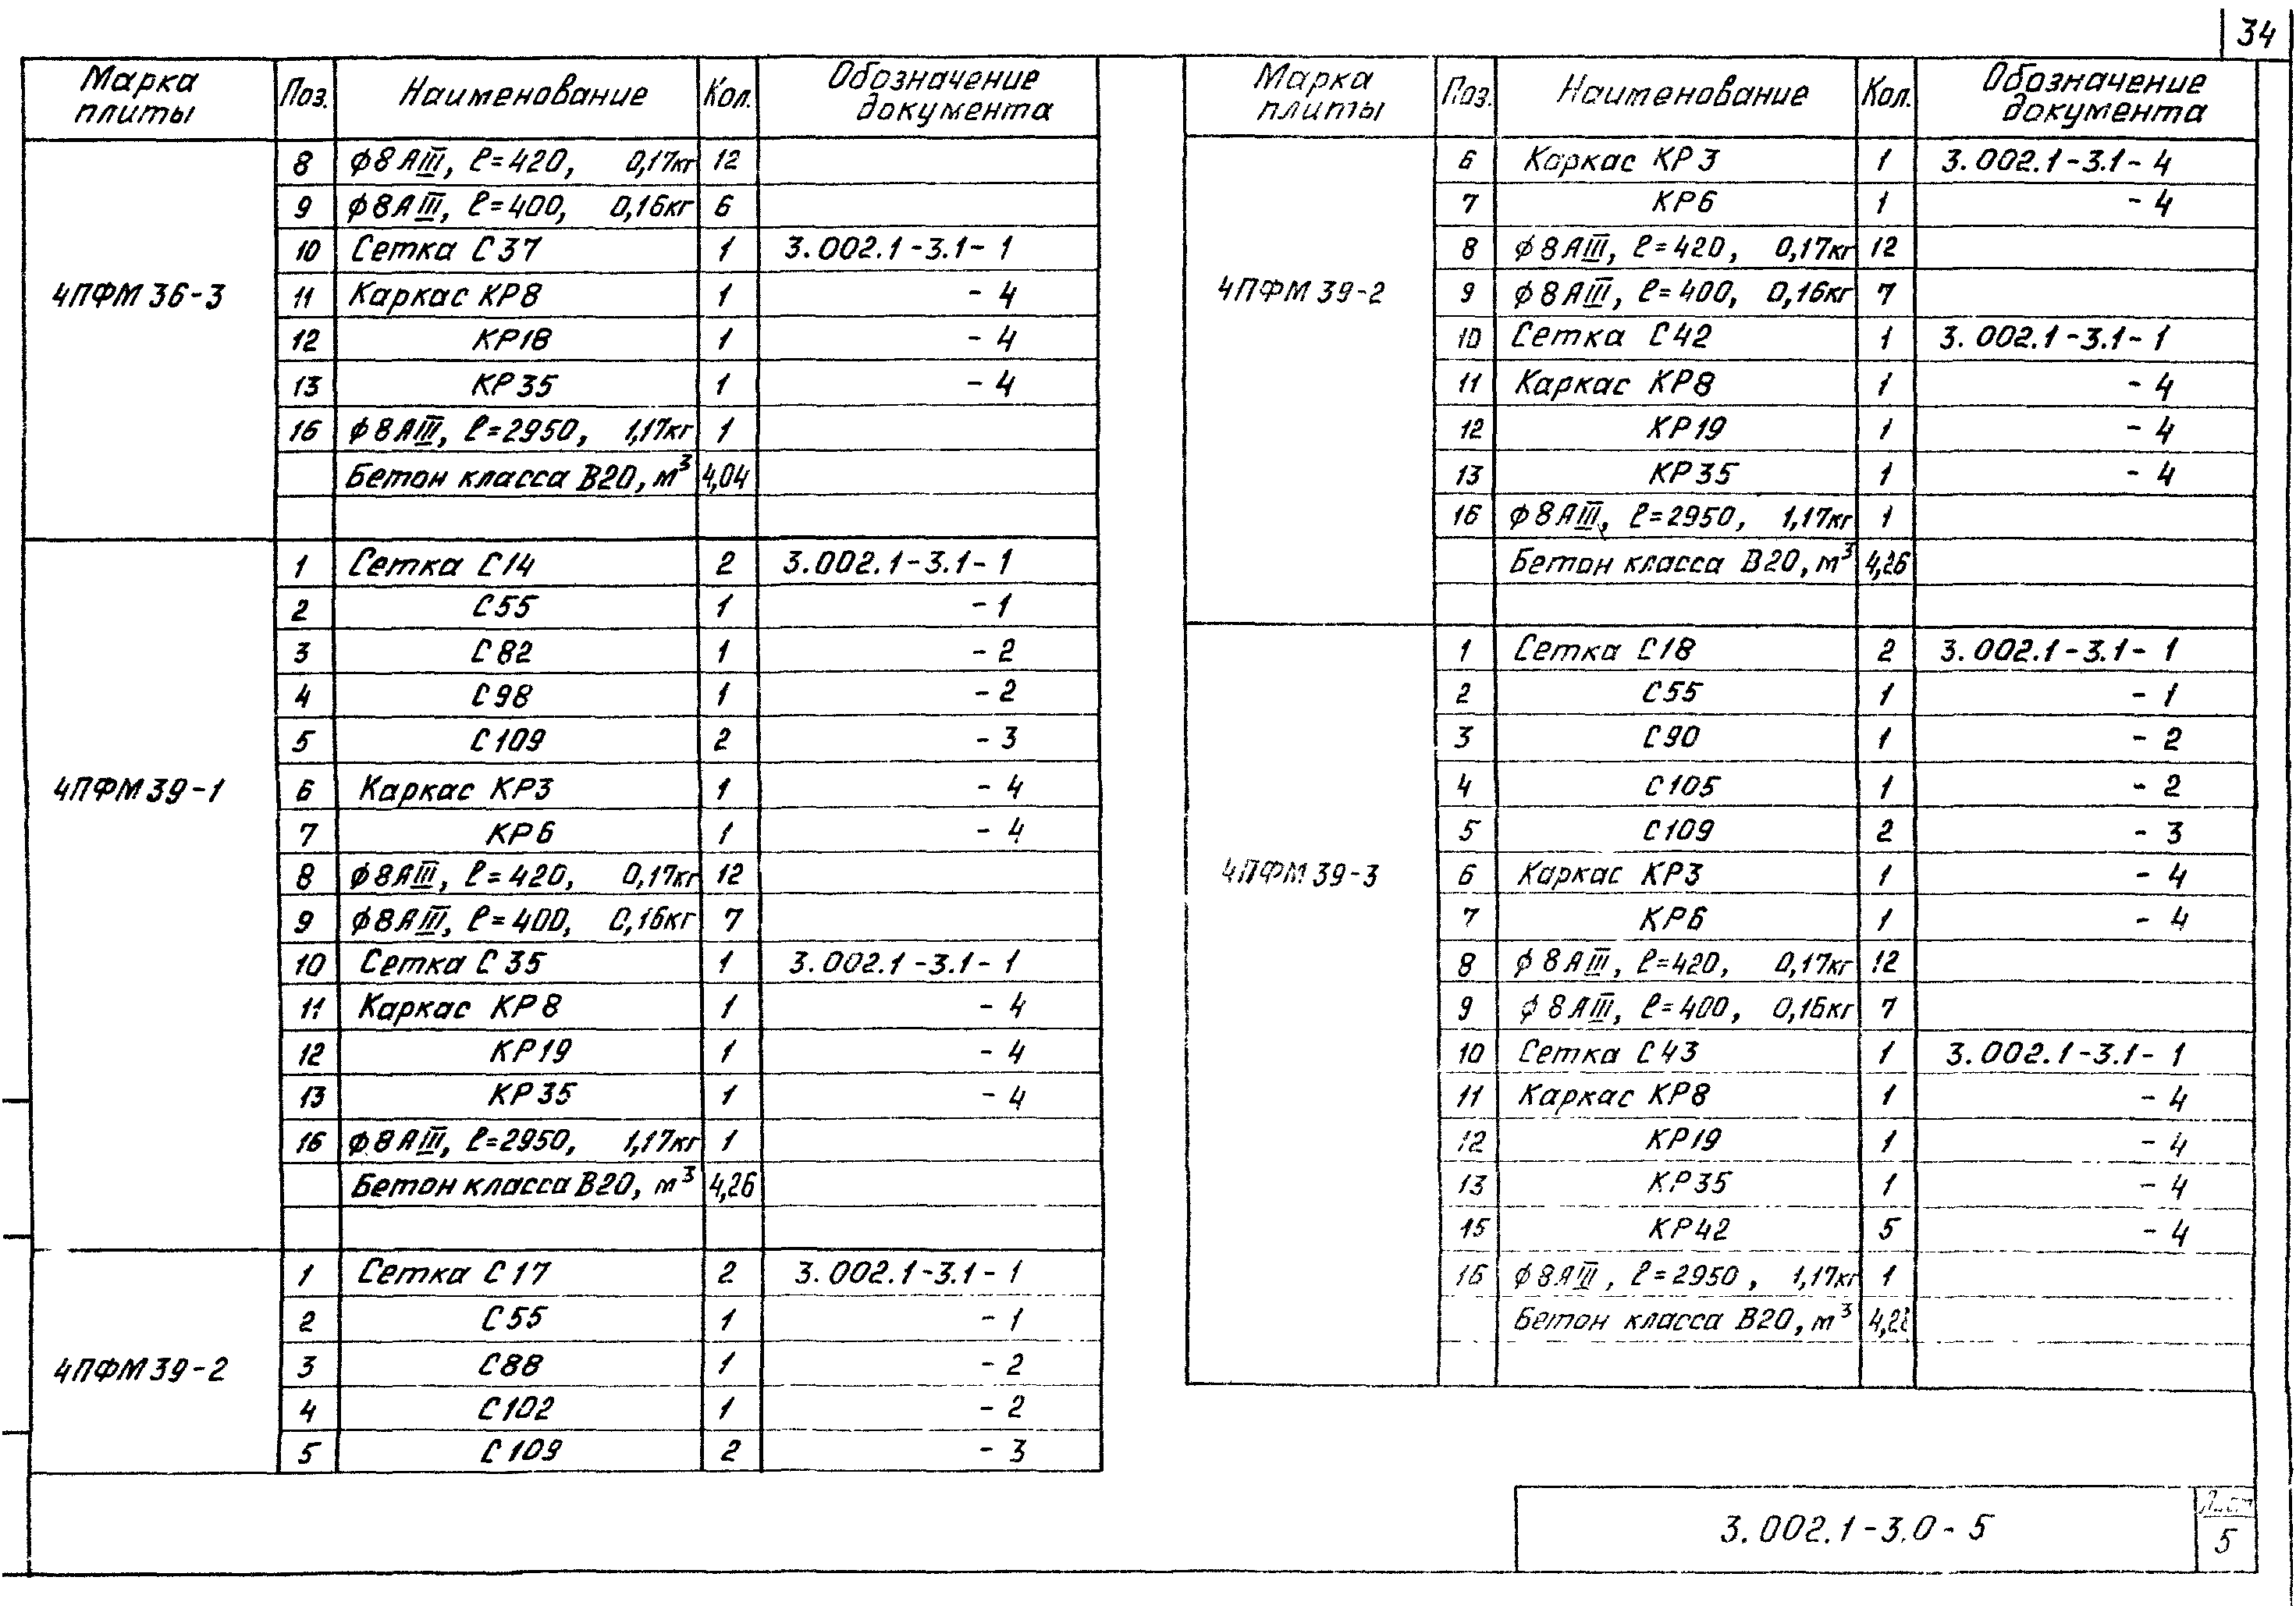 34
Марка плиты Поз. Наименование Кол. Обозначение документа
8 ф8АIII, ℓ=420, 0,17кг 12
9 ф8АIII, ℓ=400, 0,16кг 6
10 Сетка С37 1 3.002.1-3.1-1
4ПФМ36-3 11 Каркас КР8 1 -4
12 КР18 1 -4
13 КР35 1 -4
16 ф8АIII, ℓ=2950, 1,17кг 1
Бетон класса В20, м³ 4,04
1 Сетка С14 2 3.002.1-3.1-1
2 С55 1 -1
3 С82 1 -2
4 С98 1 -2
5 С109 2 -3
4ПФМ39-1 6 Каркас КР3 1 -4
7 КР6 1 -4
8 ф8АIII, ℓ=420, 0,17кг 12
9 ф8АIII, ℓ=400, 0,16кг 7
10 Сетка С35 1 3.002.1-3.1-1
11 Каркас КР8 1 -4
12 КР19 1 -4
13 КР35 1 -4
16 ф8АIII, ℓ=2950, 1,17кг 1
Бетон класса В20, м³ 4,26
1 Сетка С17 2 3.002.1-3.1-1
2 С55 1 -1
4ПФМ39-2 3 С88 1 -2
4 С102 1 -2
5 С109 2 -3
Марка плиты Поз. Наименование Кол. Обозначение документа
6 Каркас КР3 1 3.002.1-3.1-4
7 КР6 1 -4
8 ф8АIII, ℓ=420, 0,17кг 12
4ПФМ39-2 9 ф8АIII, ℓ=400, 0,16кг 7
10 Сетка С42 1 3.002.1-3.1-1
11 Каркас КР8 1 -4
12 КР19 1 -4
13 КР35 1 -4
16 ф8АIII, ℓ=2950, 1,17кг 1
Бетон класса В20, м³ 4,26
1 Сетка С18 2 3.002.1-3.1-1
2 С55 1 -1
3 С90 1 -2
4 С105 1 -2
5 С109 2 -3
4ПФМ39-3 6 Каркас КР3 1 -4
7 КР6 1 -4
8 ф8АIII, ℓ=420, 0,17кг 12
9 ф8АIII, ℓ=400, 0,16кг 7
10 Сетка С43 1 3.002.1-3.1-1
11 Каркас КР8 1 -4
12 КР19 1 -4
13 КР35 1 -4
15 КР42 5 -4
16 ф8АIII, ℓ=2950, 1,17кг 1
Бетон класса В20, м³
3.002.1-3.0-5
Лист
5